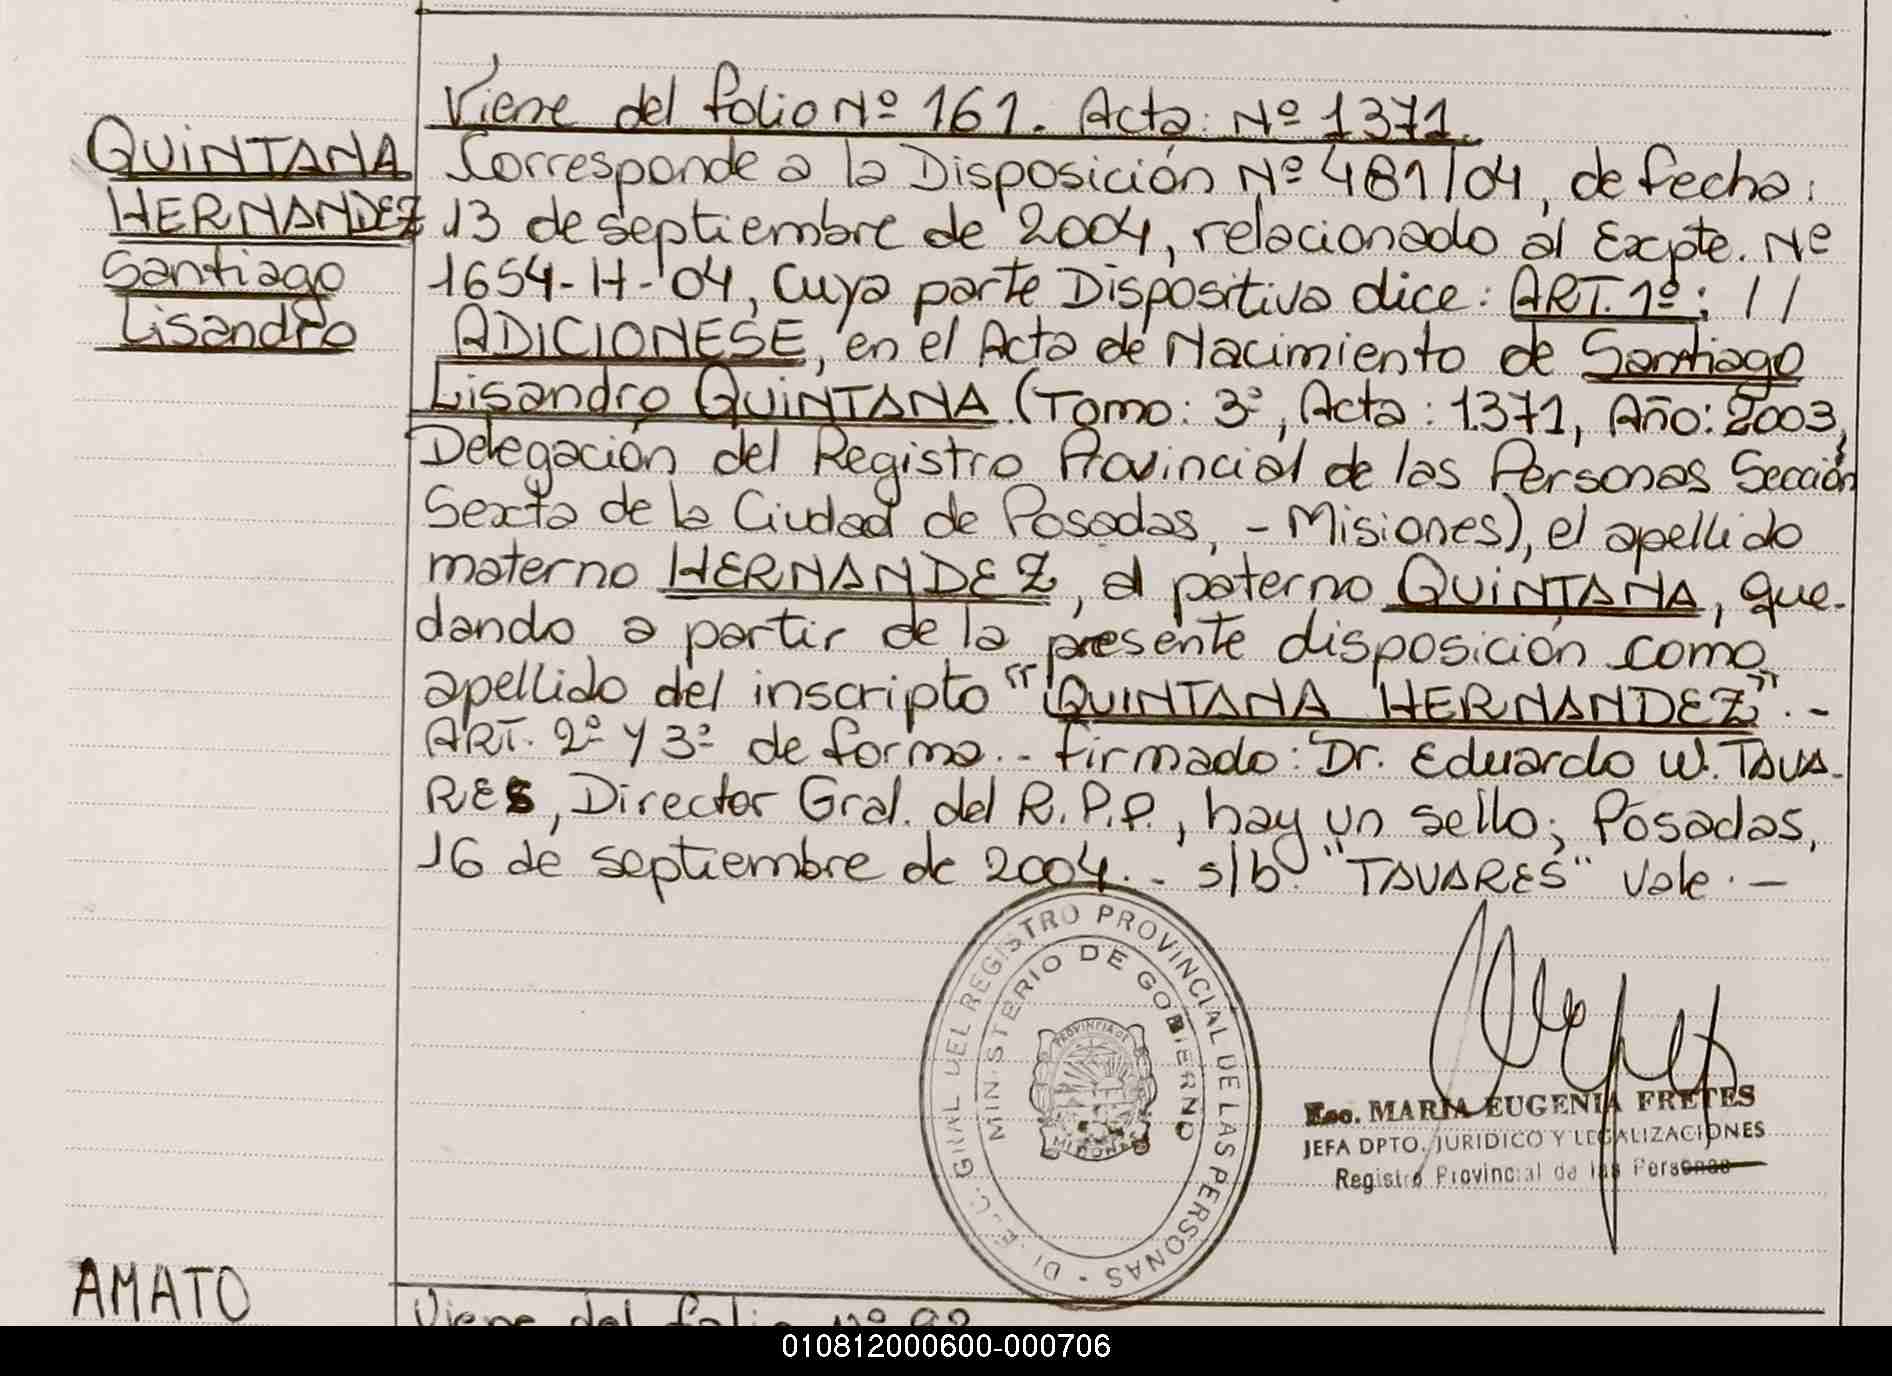 Viene del folio Nº 161. Acta: Nº 1371.
QUINTANA
HERNANDEZ
Santiago
Lisandro
Corresponde a la Disposición Nº 481/04, de fecha:
13 de septiembre de 2004, relacionado al Expte. Nº
1654-H-04, Cuya parte Dispositiva dice: ART. 1º: //
ADICIONESE, en el Acta de Nacimiento de Santiago
Lisandro QUINTANA (Tomo: 3º, Acta: 1371, Año: 2003,
Delegación del Registro Provincial de las Personas Sección
Sexta de la Ciudad de Posadas, - Misiones), el apellido
materno HERNANDEZ, al paterno QUINTANA, que-
dando a partir de la presente disposición como
apellido del inscripto "QUINTANA HERNANDEZ".-
ART. 2º y 3º de forma.- Firmado: Dr. Eduardo W. TAVA-
RES, Director Gral. del R.P.P., hay un sello; Posadas,
16 de septiembre de 2004.- s/b: "TAVARES" Vale.-
GRAL DEL REGISTRO PROVINCIAL DE LAS PERSONAS
MINISTERIO DE GOBIERNO
PROVINCIA DE
MISIONES
Esc. MARIA EUGENIA FRETES
JEFA DPTO. JURIDICO Y LEGALIZACIONES
Registro Provincial de las Personas
AMATO
Viene del folio Nº
010812000600-000706